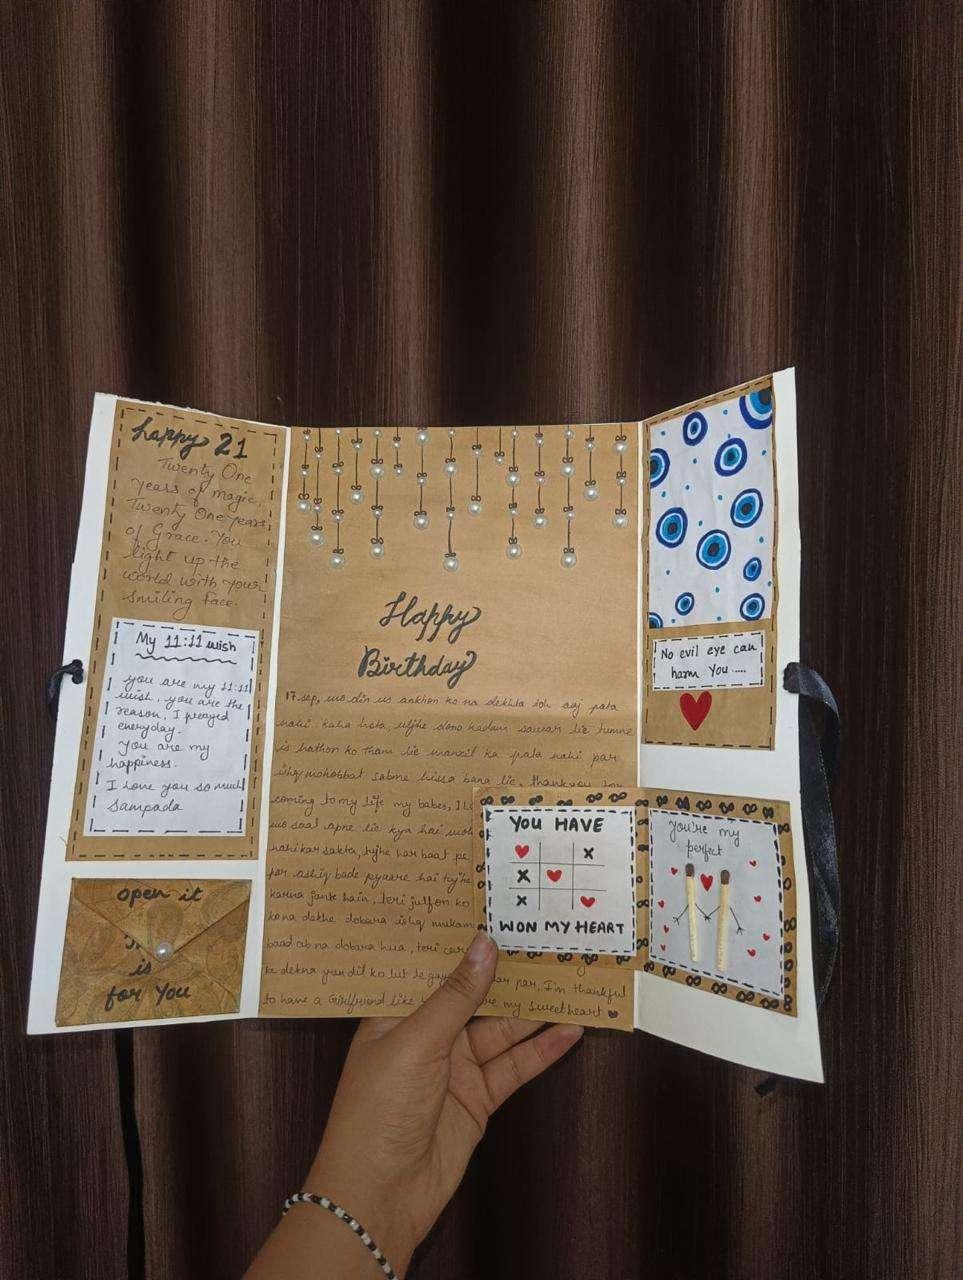 happy 21
Twenty One
years of magic,
Twenty One years
of Grace. You
light up the
world with your
Smiling Face.
My 11:11 wish
you are my 11:11
wish, you are the
reason, I prayed
everyday.
You are my
happiness.
I love you so much
Sampada
open it
is
for You
Happy
Birthday
17 sep, wo din us ankhon ko na dekhta toh aaj pata
nahi kaha hota, mjhe dono kadam sawar lie tumne
is hathon ko tham lie manzil ka pata nahi par
ishq mohobbat sabme hissa bana lie, thankyou for
coming to my life my babes, I
wo saal apne lie kya hai
nahi kar sakta, tujhe har baat pe
par ashiq bade pyaare hai tujhe
karna jante hain, teri julfon ko
ko na dekhe dobara ishq
baad ab na dobara hua, teri
ke dekna yun dil ko lut le gaya par, I'm thankful
to have a Girlfriend like my sweetheart
YOU HAVE
X
X
X
WON MY HEART
No evil eye can
harm You ....
you're my
perfect